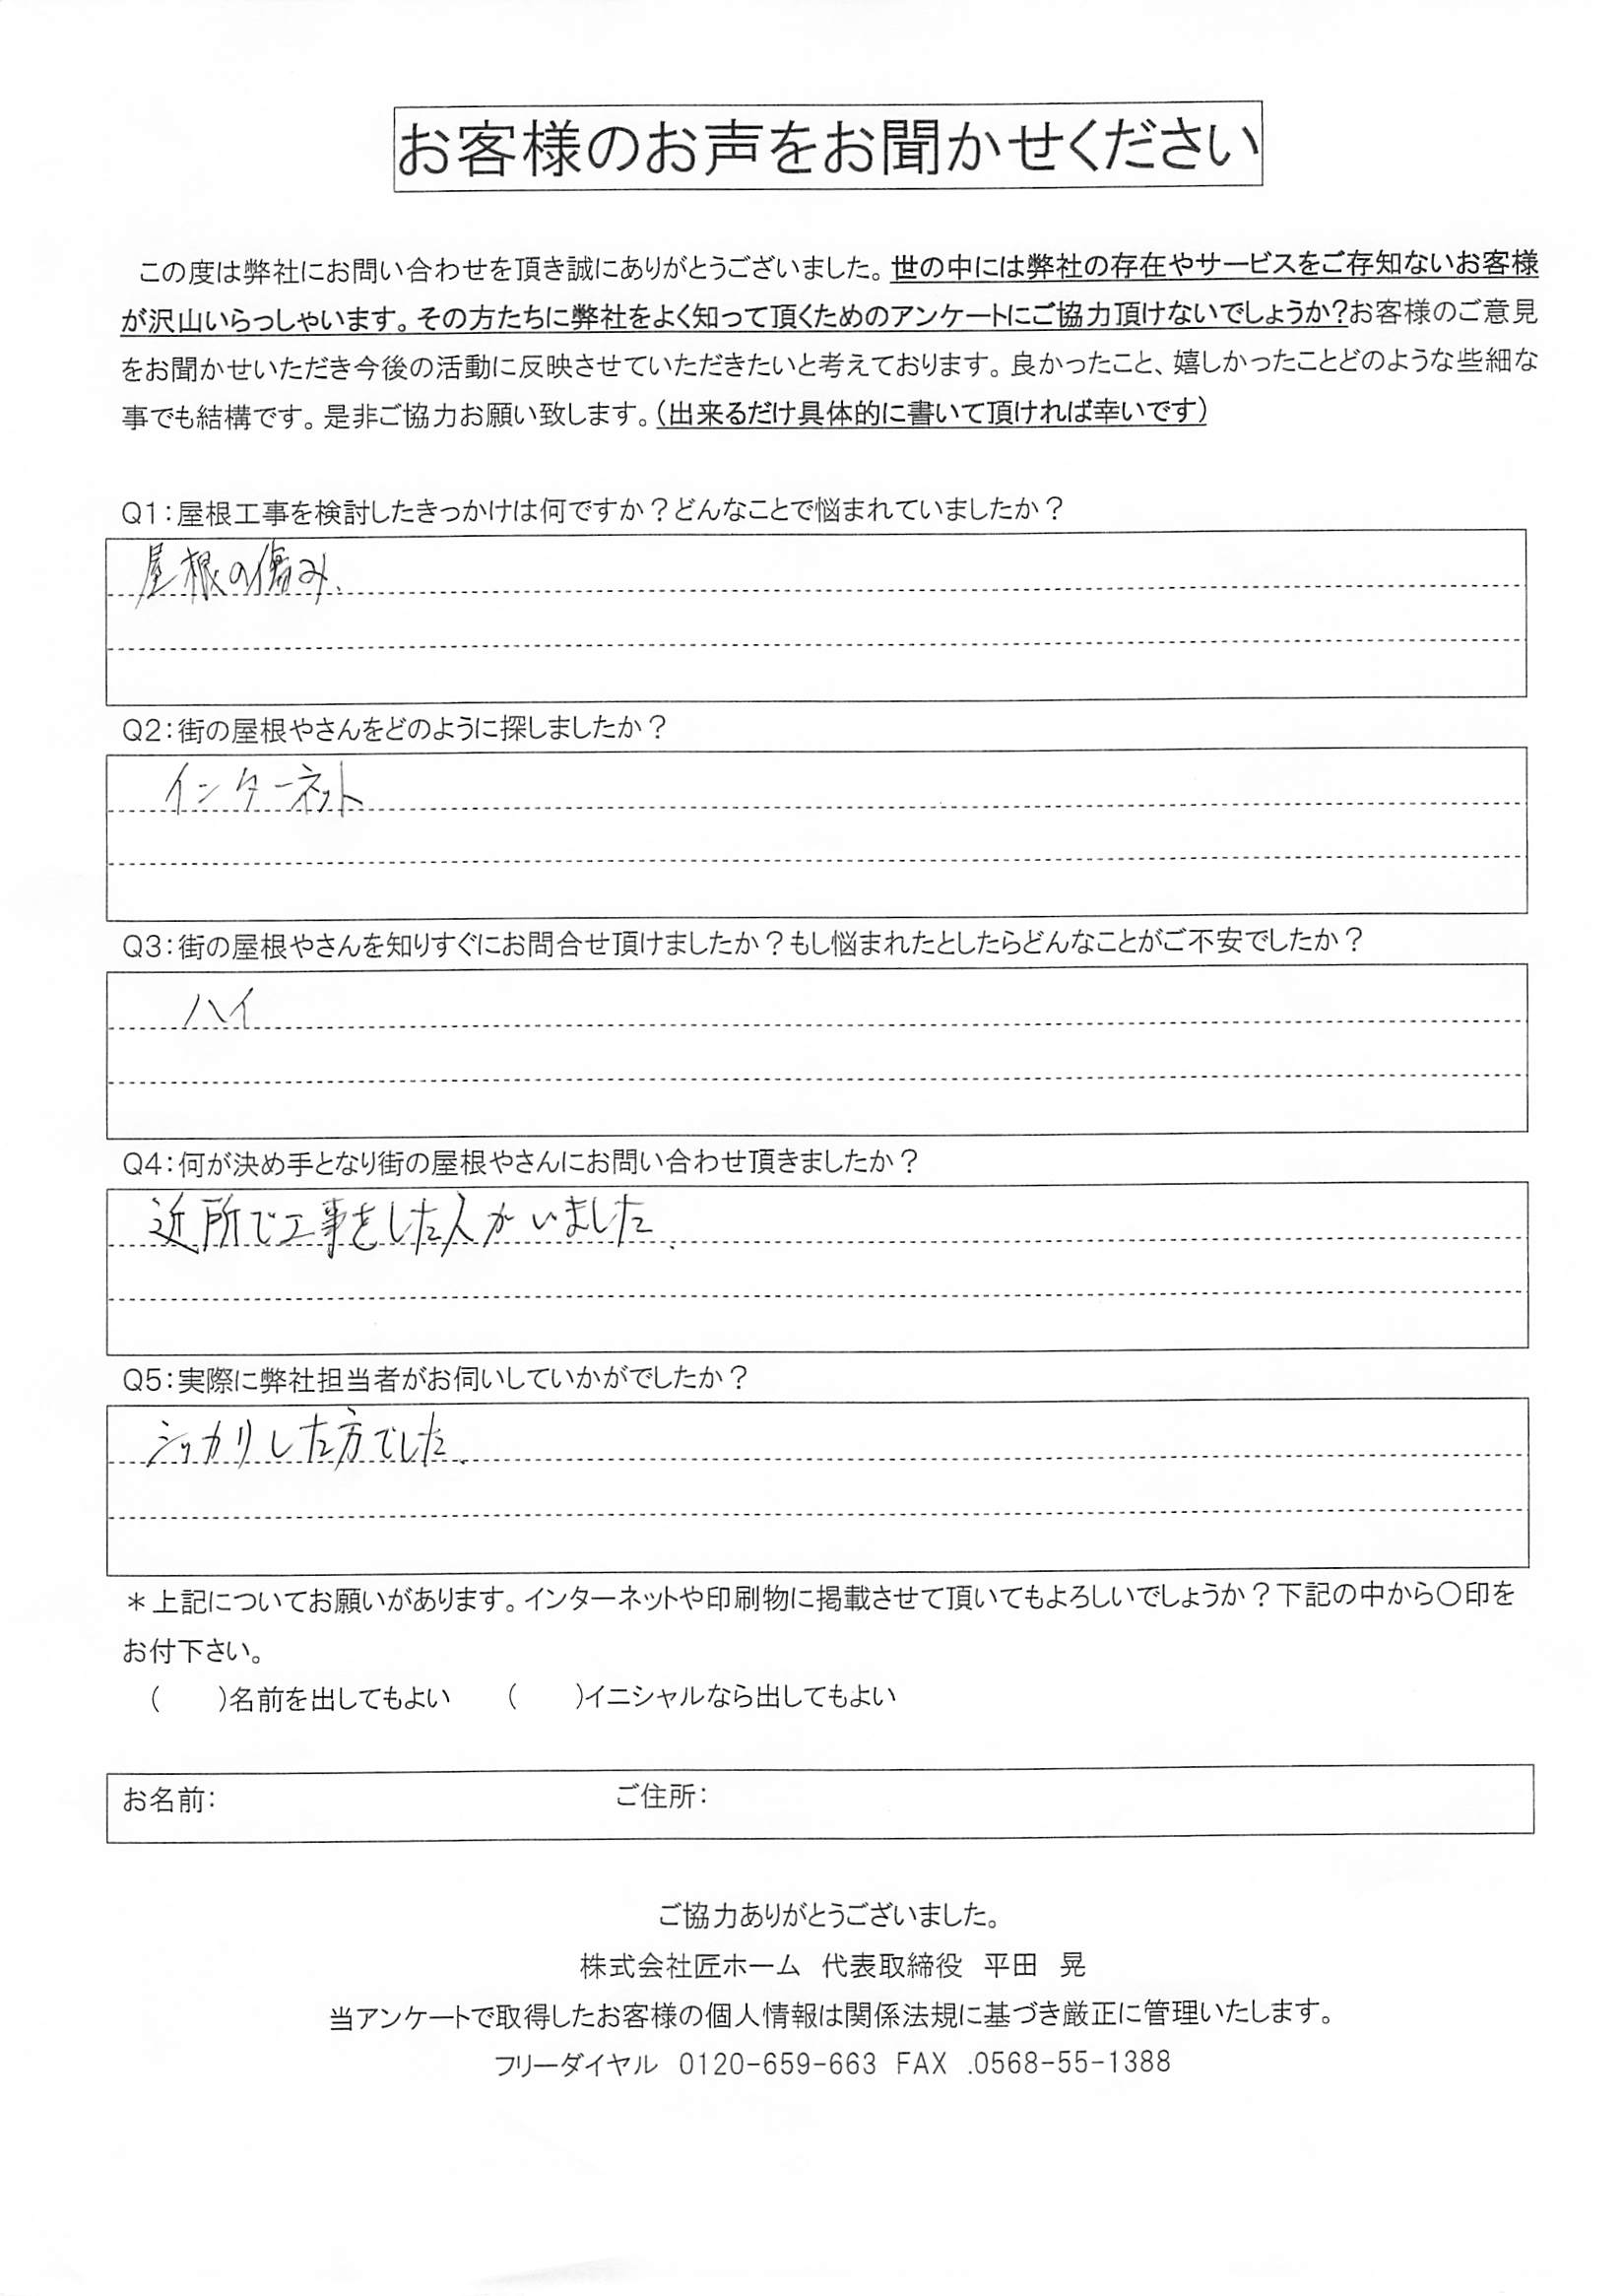 お客様のお声をお聞かせください
この度は弊社にお問い合わせを頂き誠にありがとうございました。世の中には弊社の存在やサービスをご存知ないお客様
が沢山いらっしゃいます。その方たちに弊社をよく知って頂くためのアンケートにご協力頂けないでしょうか?お客様のご意見
をお聞かせいただき今後の活動に反映させていただきたいと考えております。良かったこと、嬉しかったことどのような些細な
事でも結構です。是非ご協力お願い致します。(出来るだけ具体的に書いて頂ければ幸いです)
Q1:屋根工事を検討したきっかけは何ですか?どんなことで悩まれていましたか?
屋根の傷み、
Q2:街の屋根やさんをどのように探しましたか?
インターネット
Q3:街の屋根やさんを知りすぐにお問合せ頂けましたか?もし悩まれたとしたらどんなことがご不安でしたか?
ハイ
Q4:何が決め手となり街の屋根やさんにお問い合わせ頂きましたか?
近所で工事をした人がいました、
Q5:実際に弊社担当者がお伺いしていかがでしたか?
シッカリした方でした、
*上記についてお願いがあります。インターネットや印刷物に掲載させて頂いてもよろしいでしょうか?下記の中から〇印を
お付下さい。
(　　)名前を出してもよい　　(　　)イニシャルなら出してもよい
お名前:　　ご住所:
ご協力ありがとうございました。
株式会社匠ホーム　代表取締役　平田　晃
当アンケートで取得したお客様の個人情報は関係法規に基づき厳正に管理いたします。
フリーダイヤル　0120-659-663　FAX　.0568-55-1388